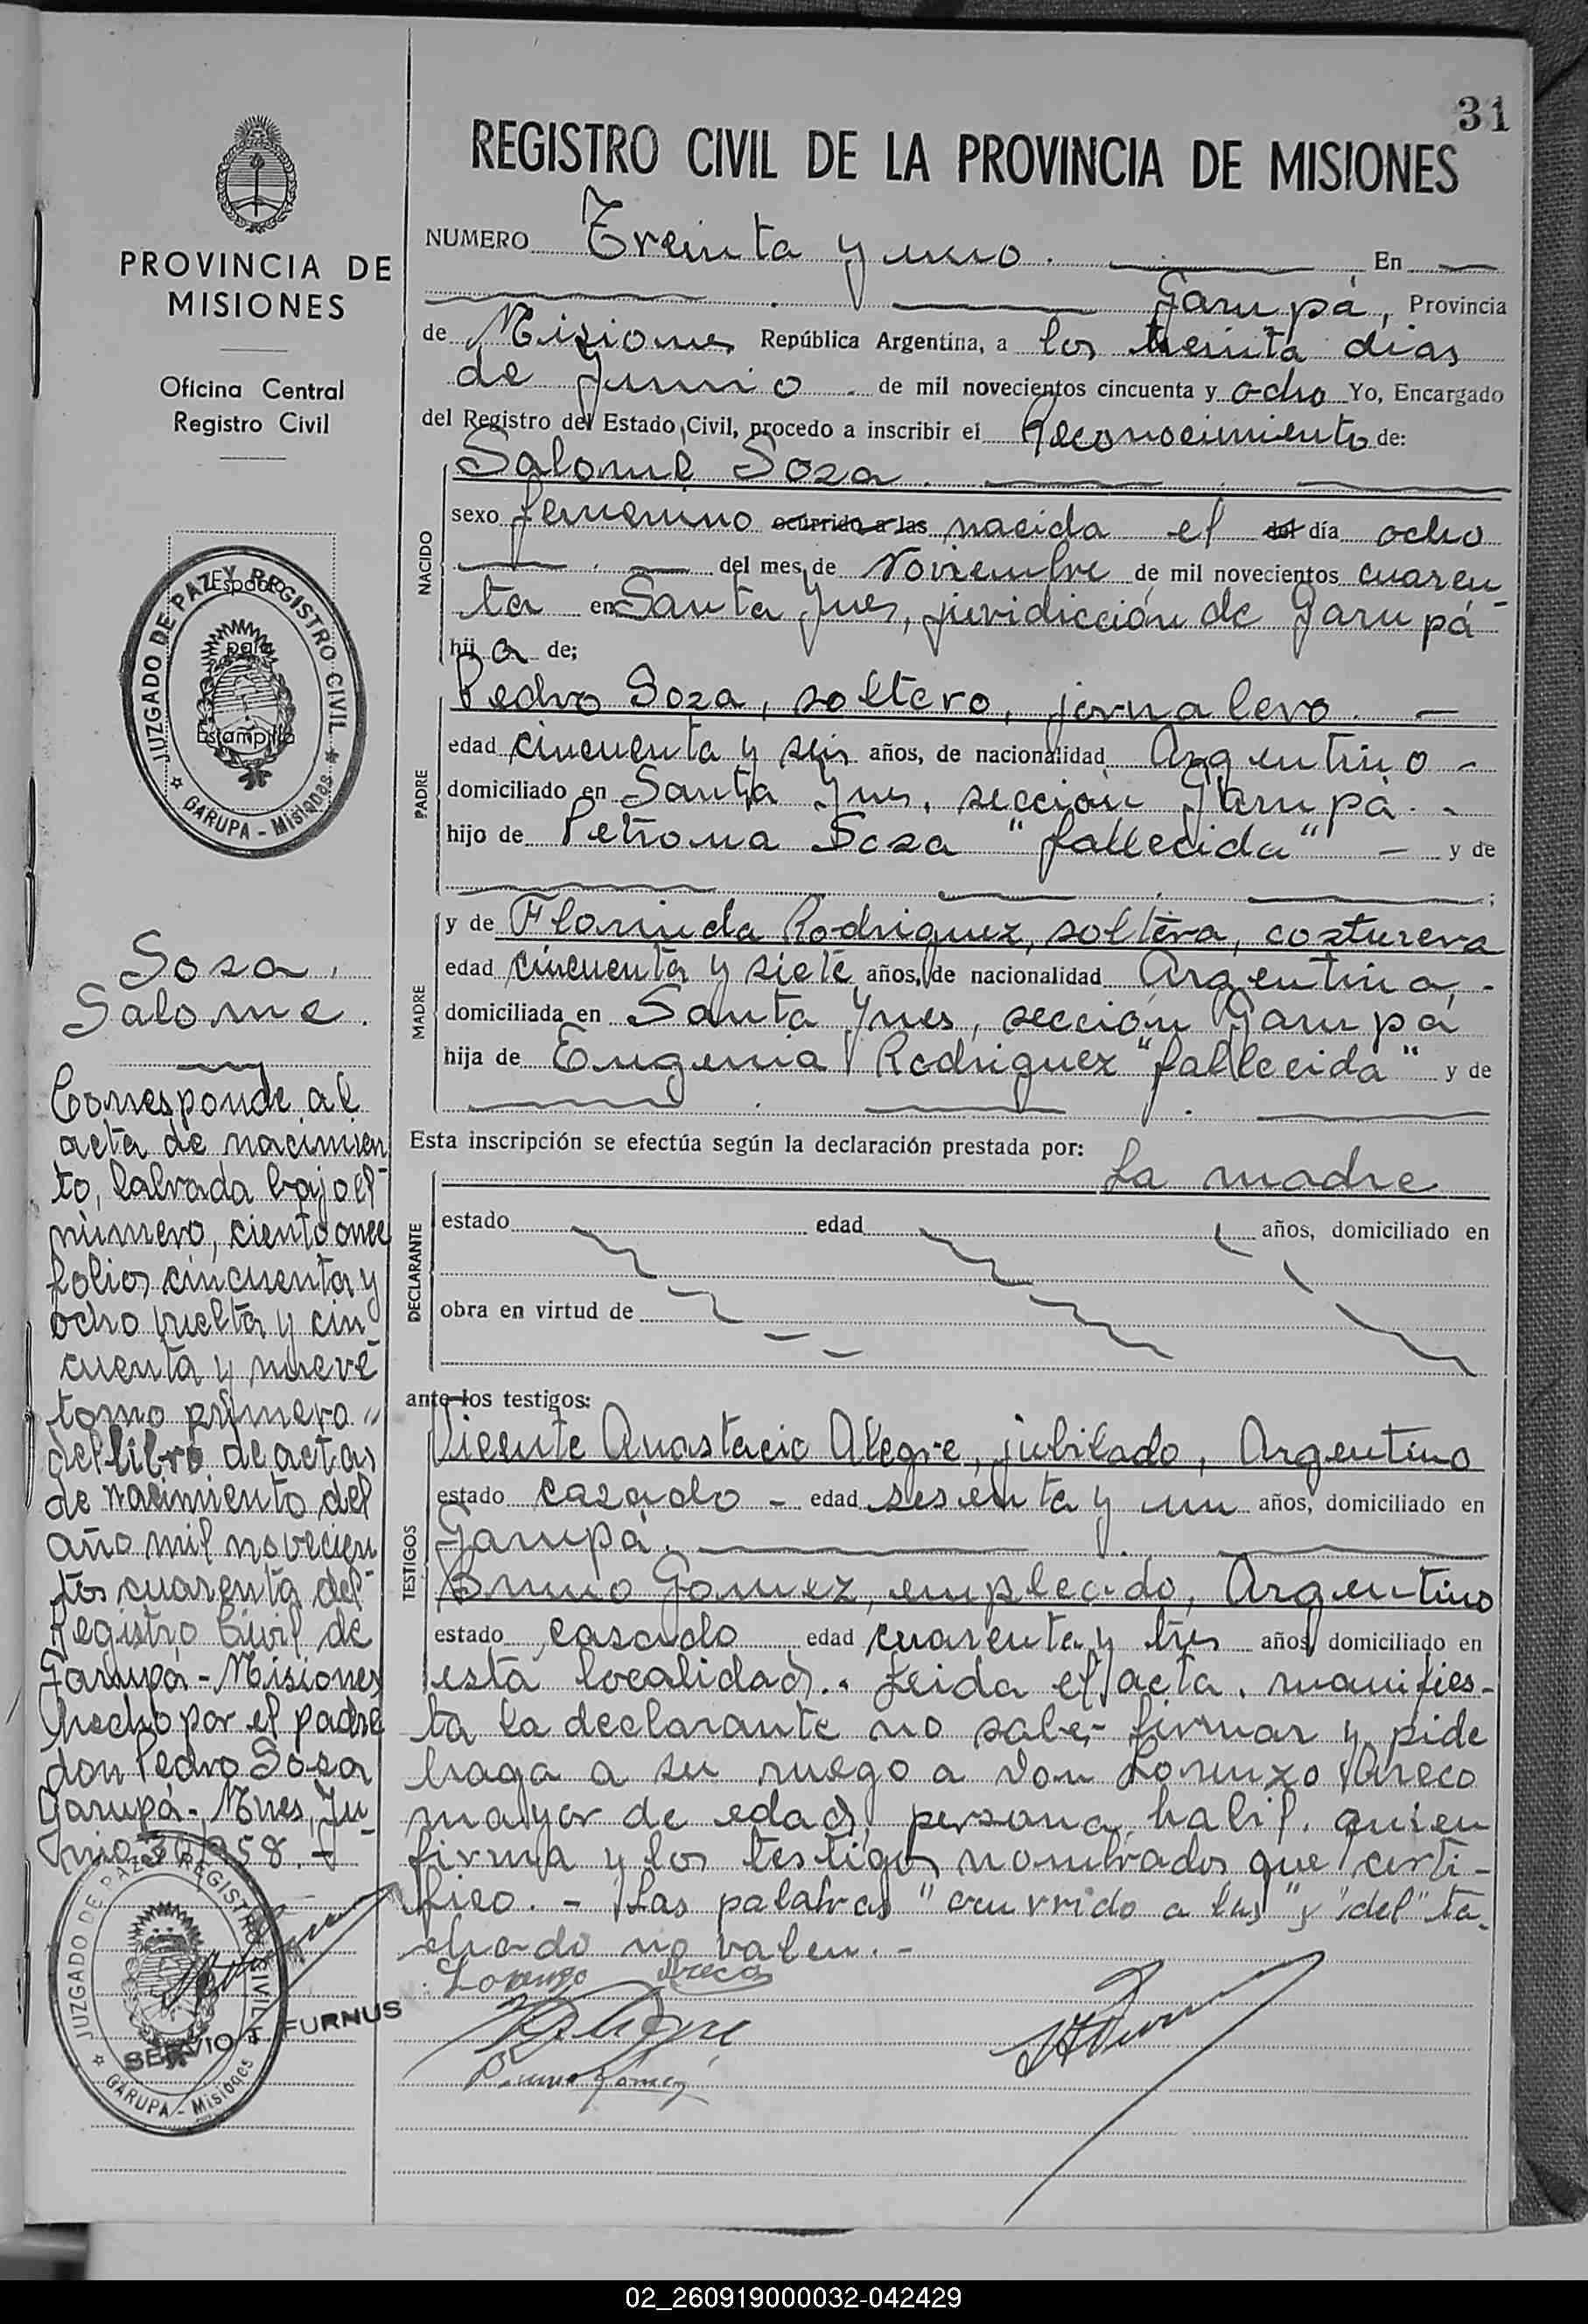 31
REGISTRO CIVIL DE LA PROVINCIA DE MISIONES
PROVINCIA DE
MISIONES
Oficina Central
Registro Civil
Espacio
para
Estampilla
JUZGADO DE PAZ Y REGISTRO CIVIL
GARUPA - Misiones
Sosa,
Salome.
Corresponde al
acta de nacimien
to, labrada bajo el
número, ciento once
folios cincuenta y
ocho vuelta y cin
cuenta y nueve
tomo primero
del libro de actas
de nacimiento del
año mil novecien
tos cuarenta del
Registro Civil de
Garupá - Misiones
hecho por el padre
don Pedro Sosa
Garupá - Mnes, Ju-
nio 30/958. -
JUZGADO DE PAZ Y REGISTRO CIVIL
SERVIO T. FURNUS
GARUPA - Misiones
NUMERO Treinta y uno. En
Garupá, Provincia
de Misiones República Argentina, a los treinta dias
de Junio de mil novecientos cincuenta y ocho Yo, Encargado
del Registro del Estado Civil, procedo a inscribir el Reconocimiento de:
Salome Sosa.
NACIDO
sexo femenino ocurrido a las nacida el del día ocho
del mes de Noviembre de mil novecientos cuaren-
ta en Santa Ynes, juridicción de Garupá
hij a de;
PADRE
Pedro Sosa, soltero, jornalero. -
edad cincuenta y seis años, de nacionalidad Argentino -
domiciliado en Santa Ynes, sección Garupá. -
hijo de Petrona Sosa "fallecida" - y de
MADRE
y de Florinda Rodriguez, soltera, costurera
edad cincuenta y siete años, de nacionalidad Argentina, -
domiciliada en Santa Ynes, sección Garupá
hija de Eugenia Rodriguez "fallecida" y de
Esta inscripción se efectúa según la declaración prestada por:
La madre
DECLARANTE
estado edad años, domiciliado en
obra en virtud de
ante los testigos:
TESTIGOS
Vicente Anastacio Alegre, jubilado, Argentino
estado casado - edad sesenta y un años, domiciliado en
Garupá.
Bruno Gomez, empleado, Argentino
estado casado edad cuarenta y tres años, domiciliado en
esta localidad. - Leida el acta, manifies-
ta la declarante no saber firmar y pide
haga a su ruego a don Lorenzo Areco
mayor de edad, persona habil, quien
firma y los testigos nombrados, que certi-
fico. - Las palabras "ocurrido a las" y "del" ta-
chado no valen. -
Lorenzo Areco
Bruno Gomez
02_260919000032-042429